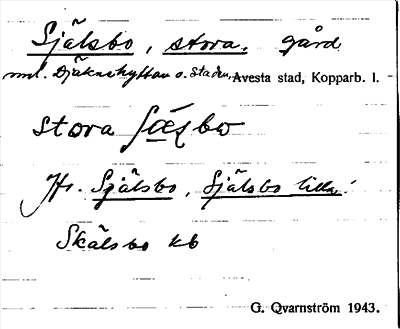 Själsbo, stora. gård
ml. Djäknehyttan o. staden, Avesta stad, Kopparb. l.
stora
Jfr. Själsbo, Själsbo lilla!
Skälsbo kb
G. Qvarnström 1943.